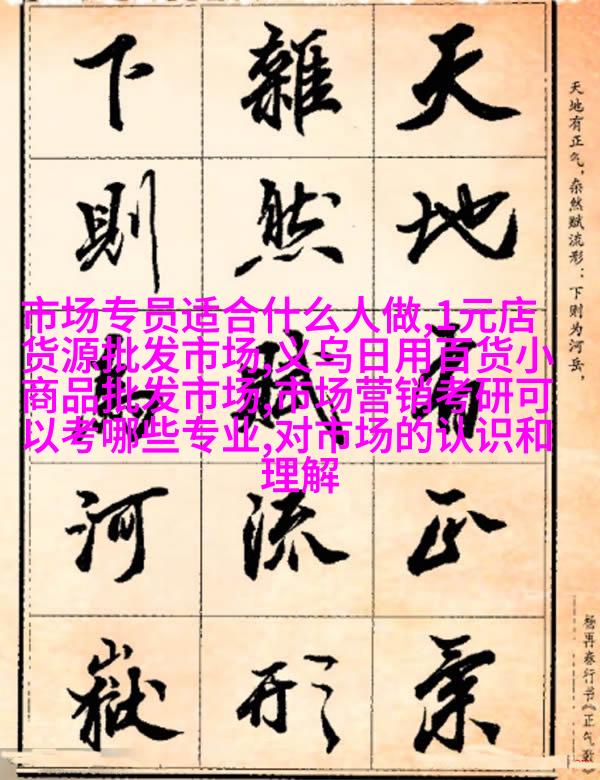 天地有正氣
雜然賦流形
下則為河嶽
天地有正气，杂然赋流形：下则为河岳，
杨再春行书《正气歌》
市场专员适合什么人做,1元店
货源批发市场,义乌日用百货小
商品批发市场,市场营销考研可
以考哪些专业,对市场的认识和
理解